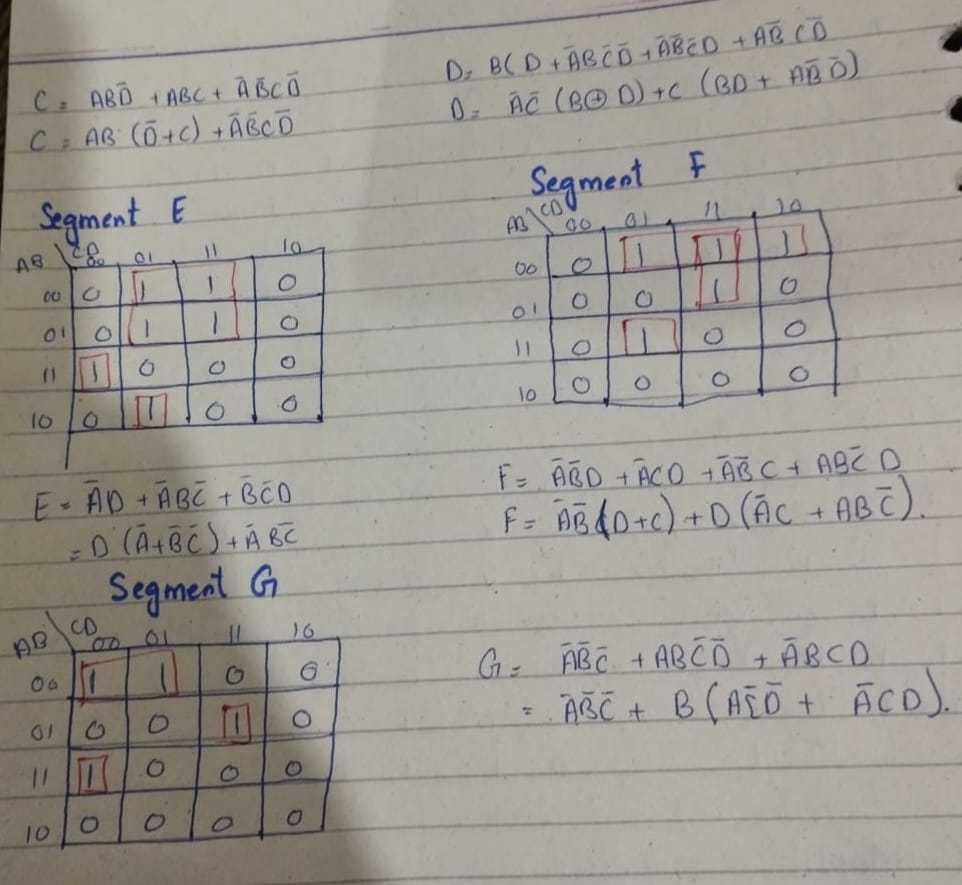 C = ABD̄ + ABC + ĀB̄CD̄
C = AB (D̄+C) + ĀB̄CD̄
D = BCD + ĀBC̄D̄ + ĀB̄C̄D + AB̄CD̄
D = ĀC̄ (B⊕D) + C (BD + AB̄D̄)
Segment E
AB \ CD 00 01 11 10
00 0 1 1 0
01 0 1 1 0
11 1 0 0 0
10 0 1 0 0
E = ĀD + ĀBC̄ + B̄C̄D
= D (Ā+B̄C̄) + ĀBC̄
Segment F
AB \ CD 00 01 11 10
00 0 1 1 1
01 0 0 1 0
11 0 1 0 0
10 0 0 0 0
F = ĀB̄D + ĀCD + ĀB̄C + ABC̄D
F = ĀB̄(D+C) + D (ĀC + ABC̄).
Segment G
AB \ CD 00 01 11 10
00 1 1 0 0
01 0 0 1 0
11 1 0 0 0
10 0 0 0 0
G = ĀB̄C̄ + ABC̄D̄ + ĀBCD
= ĀB̄C̄ + B (AC̄D̄ + ĀCD).